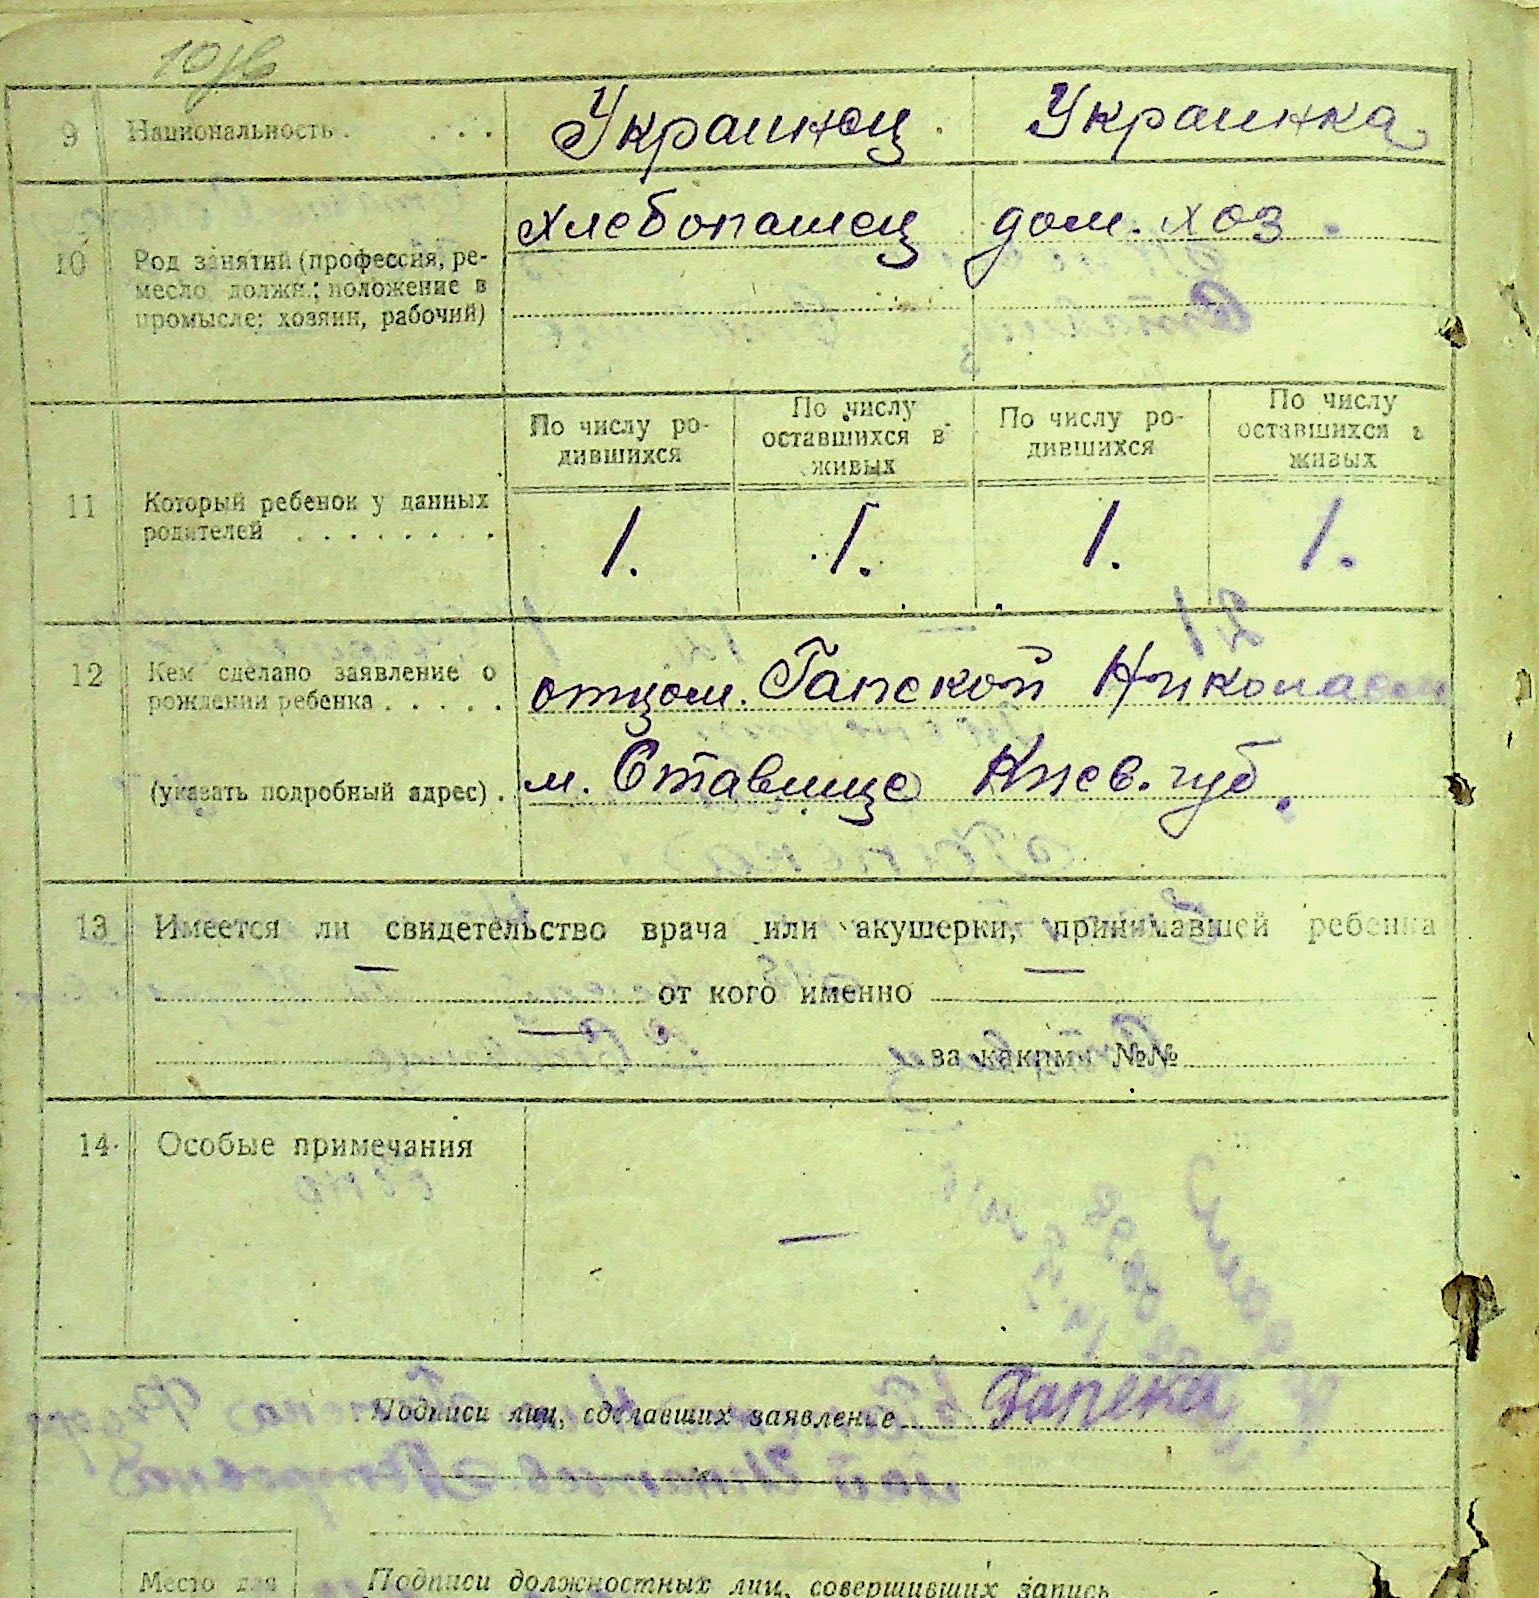 9 Национальность . . . . Украинец. Украинка
хлебопашец дом. хоз.
10 Род занятий (профессия, ре-
месло, должн.; положение в
промысле: хозяин, рабочий)
По числу ро-
дившихся
По числу
оставшихся в
живых
По числу ро-
дившихся
По числу
оставшихся в
живых
11 Который ребенок у данных
родителей . . . . . . . .
1. 1. 1. 1.
12 Кем сделано заявление о
рождении ребенка . . . . . отцом. Гапекой Николаем
(указать подробный адрес) . м. Ставище Киев. губ.
13 Имеется ли свидетельство врача или акушерки, принимавшей ребенка
— от кого именно —
— за какими №№
14 Особые примечания
—
Подписи лиц, сделавших заявление Гапека
Место для
Подписи должностных лиц, совершивших запись